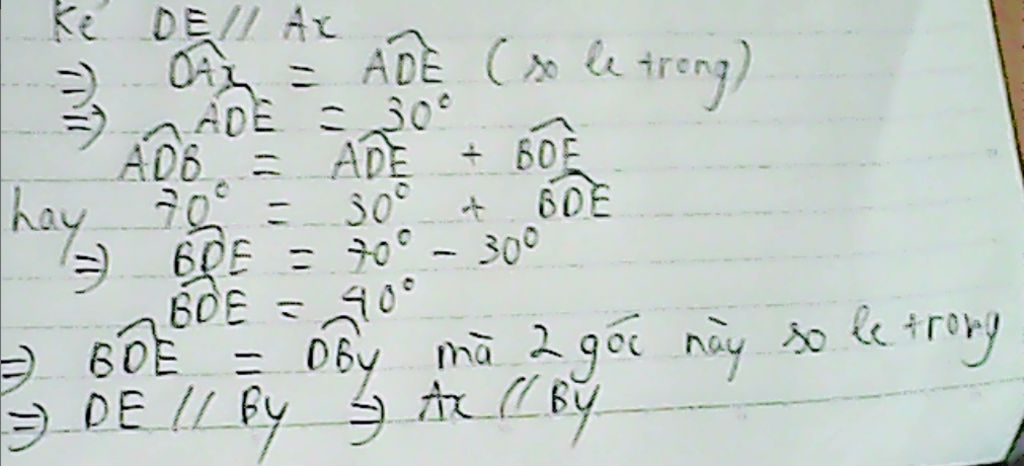 Kẻ DE // Ax
=> \widehat{DAx} = \widehat{ADE} (so le trong)
=> \widehat{ADE} = 30°
\widehat{ADB} = \widehat{ADE} + \widehat{BDE}
hay 70° = 30° + \widehat{BDE}
=> \widehat{BDE} = 70° - 30°
\widehat{BDE} = 40°
=> \widehat{BDE} = \widehat{DBy} mà 2 góc này so le trong
=> DE // By => Ax // By